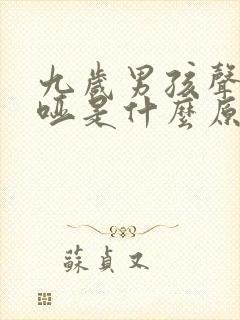 九歲男孩聲
啞是什麼原
蘇貞又